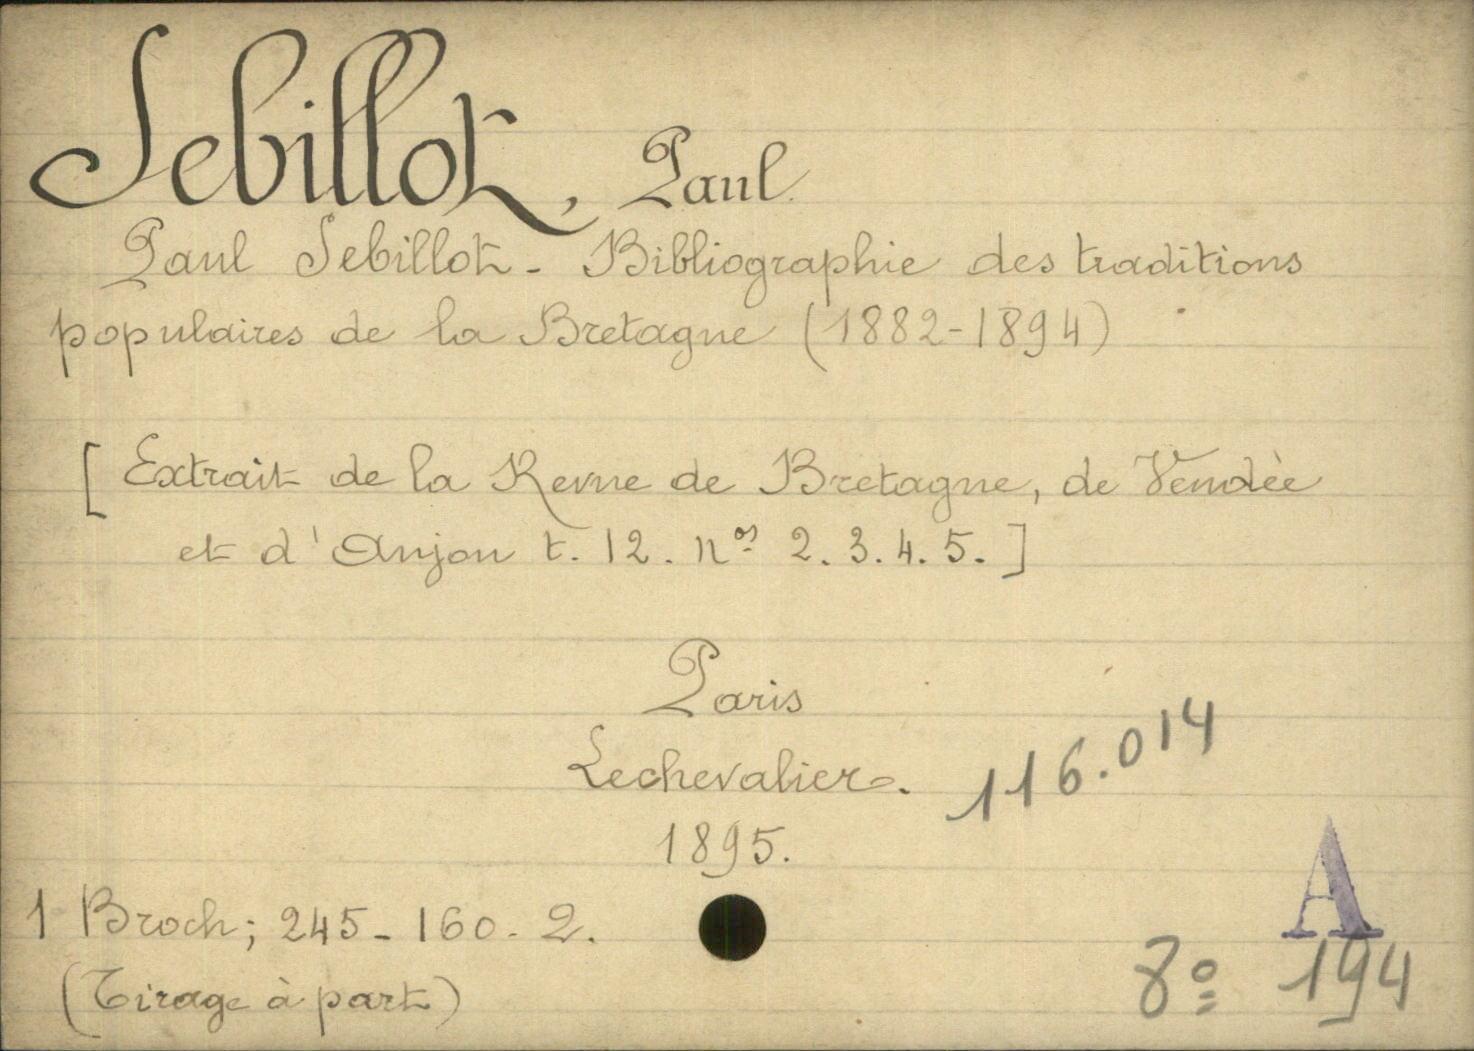 Sebillot, Paul
Paul Sebillot - Bibliographie des traditions
populaires de la Bretagne (1882-1894)
[ Extrait de la Revue de Bretagne, de Vendèe
et d'Anjou t. 12. nos 2. 3. 4. 5. ]
Paris
Lechevalier.
116.014
1895.
A
1 Broch; 245 - 160 - 2.
8º 194
(Tirage à part)